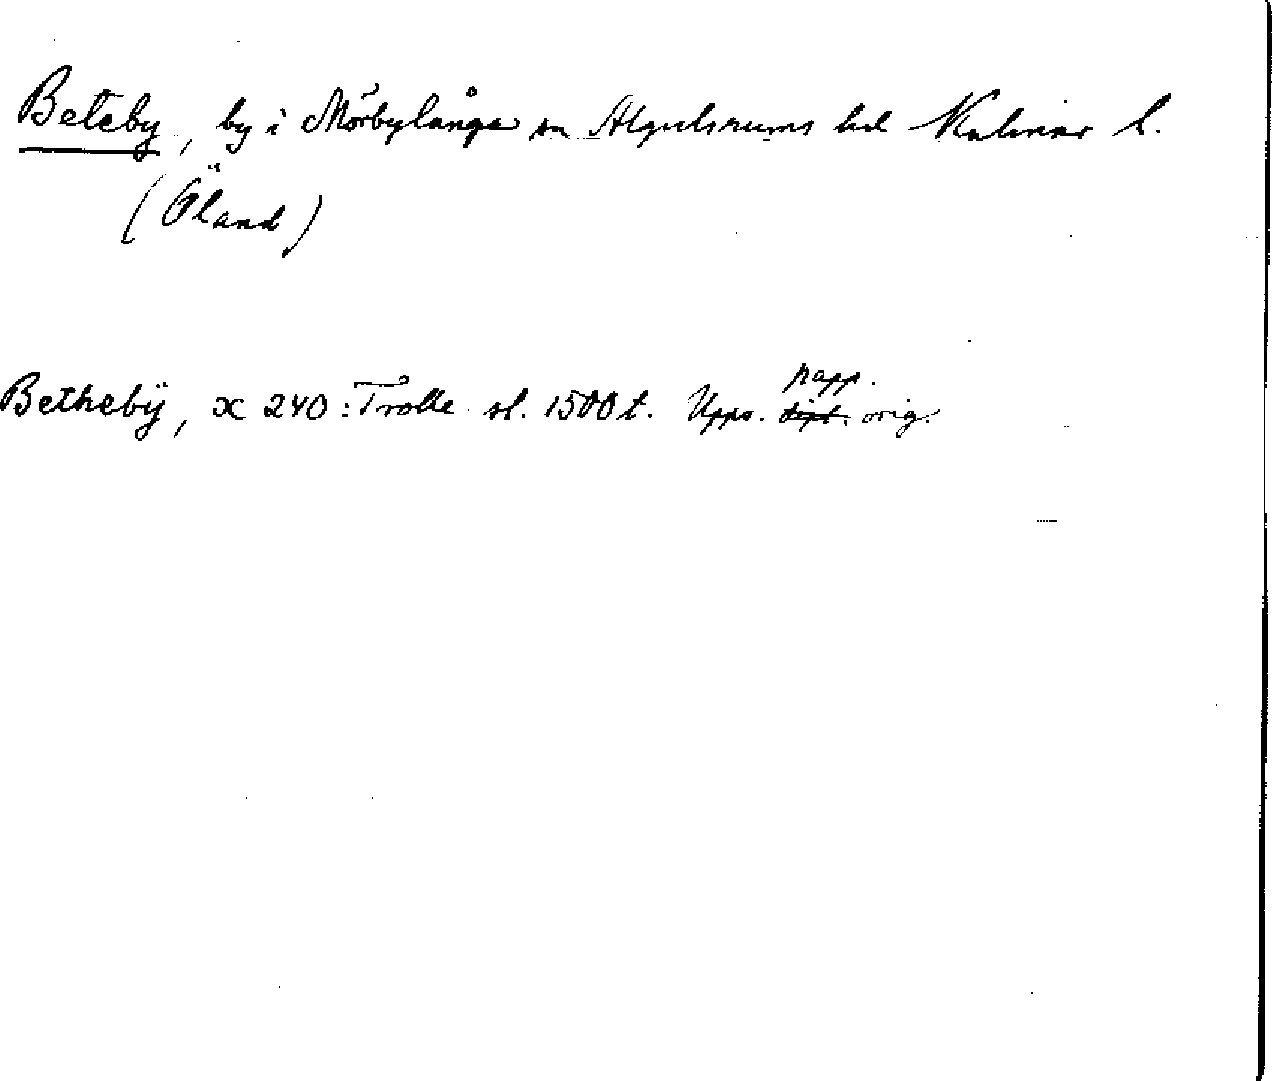 Beteby, by i Mörbylånga sn Algutsrums hd Kalmar l.
(Öland)
Bethebÿ, x 240: Trolle sl. 1500 t. Upps. papp. orig.